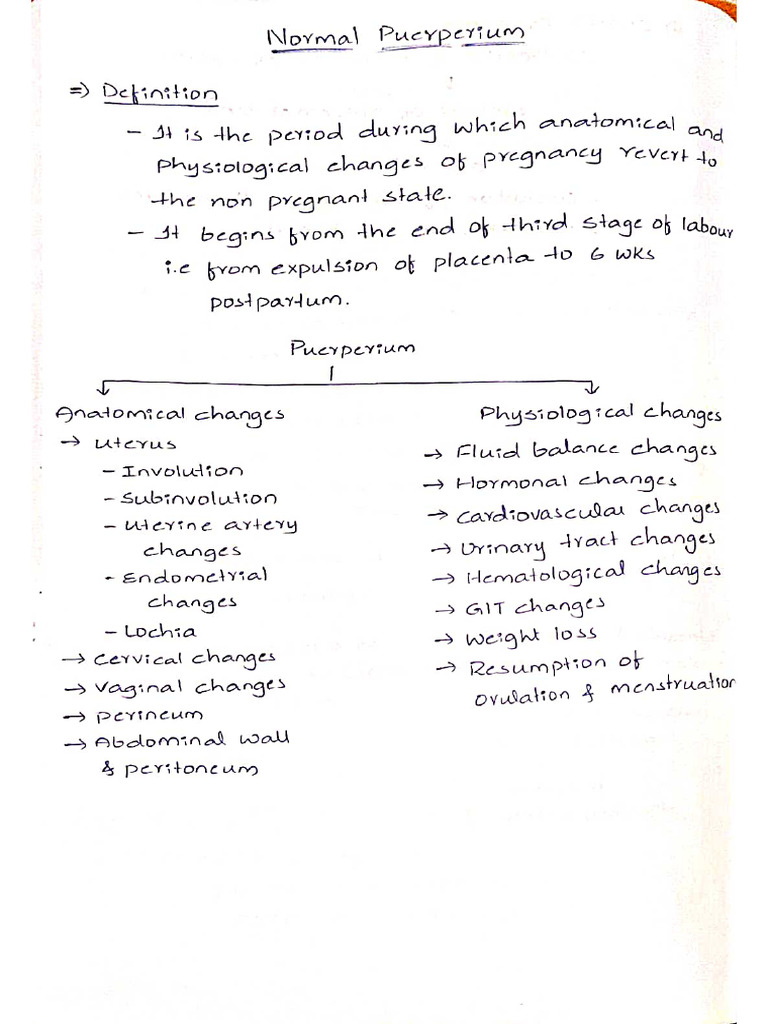 Normal Puerperium
=> Definition
- It is the period during which anatomical and
physiological changes of pregnancy revert to
the non pregnant state.
- It begins from the end of third stage of labour
i.e from expulsion of placenta to 6 wks
postpartum.
Puerperium
Anatomical changes
→ Uterus
- Involution
- Subinvolution
- Uterine artery
changes
- Endometrial
changes
- Lochia
→ Cervical changes
→ Vaginal changes
→ Perineum
→ Abdominal wall
& peritoneum
Physiological changes
→ Fluid balance changes
→ Hormonal changes
→ Cardiovascular changes
→ Urinary tract changes
→ Hematological changes
→ GIT changes
→ Weight loss
→ Resumption of
ovulation & menstruation